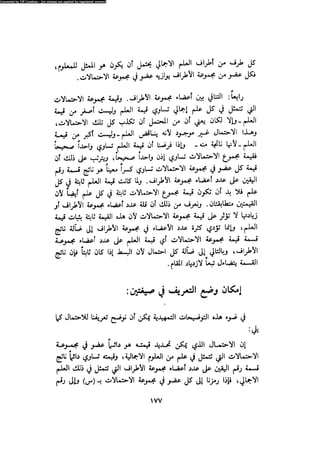 Converted by Tiff Combine - (no stamps are applied by registered version)
كل طرف من أطراف العلم الإجمالي يحتمل أن يكون هو الممثل للمعلوم،
فكل عضو من مجموعة الأطراف يوازيه عضو في مجموعة الاحتمالات.
رابعاً: التنافي بين أعضاء مجموعة الأطراف. وقيمة مجموعة الاحتمالات
التي تتمثل في كل علم إجمالي تساوي قيمة العلم وليست أصغر من قيمة
العلم - وإلّا لكان يعني أن المحتمل أن تكذب كل تلك الاحتمالات،
وهذا الاحتمال غير موجود لأنه يناقض العلم - وليست أكبر من قيمة
العلم - لأنها ناتجة منه - وإذا فرضنا أن قيمة العلم تساوي واحداً صحيحاً
فقيمة مجموعة الاحتمالات تساوي إذن واحداً صحيحاً، ويترتب على ذلك أن
قيمة كل عضو في مجموعة الاحتمالات تساوي كسراً معيناً هو ناتج قسمة رقم
اليقين على عدد أعضاء مجموعة الأطراف. ولما كانت قيمة العلم ثابتة في كل
علم فلا بد أن تكون قيمة مجموع الاحتمالات ثابتة في كل علم أيضاً لأن
القيمتين متطابقتان. ونعرف من ذلك أن قلة عدد أعضاء مجموعة الأطراف أو
ازديادها لا تؤثر على قيمة مجموعة الاحتمالات لأن هذه القيمة ثابتة بثبات قيمة
العلم، وإنما تؤدي كثرة عدد الأعضاء في مجموعة الأطراف إلى ضآلة ناتج
قسمة قيمة مجموعة الاحتمالات أي قيمة العلم على عدد أعضاء مجموعة
الأطراف، وبالتالي إلى ضآلة كل احتمال لأن البسط إذا كان ثابتاً فإن ناتج
القسمة يتضاءل تبعاً لازدياد المقام.
إمكان وضع التعريف في صيغتين:
في ضوء هذه التوضيحات التمهيدية يمكن أن نوضح تعريفنا للاحتمال كما
يلي:
إن الاحتمال الذي يمكن تحديد قيمته هو دائماً عضو في مجموعة
الاحتمالات التي تتمثل في علم من العلوم الإجمالية، وقيمته تساوي دائماً ناتج
قسمة رقم اليقين على عدد أعضاء مجموعة الأطراف التي تتمثل في ذلك العلم
الإجمالي، فإذا رمزنا إلى كل عضو في مجموعة الاحتمالات بـ (س) وإلى رقم
١٧٧